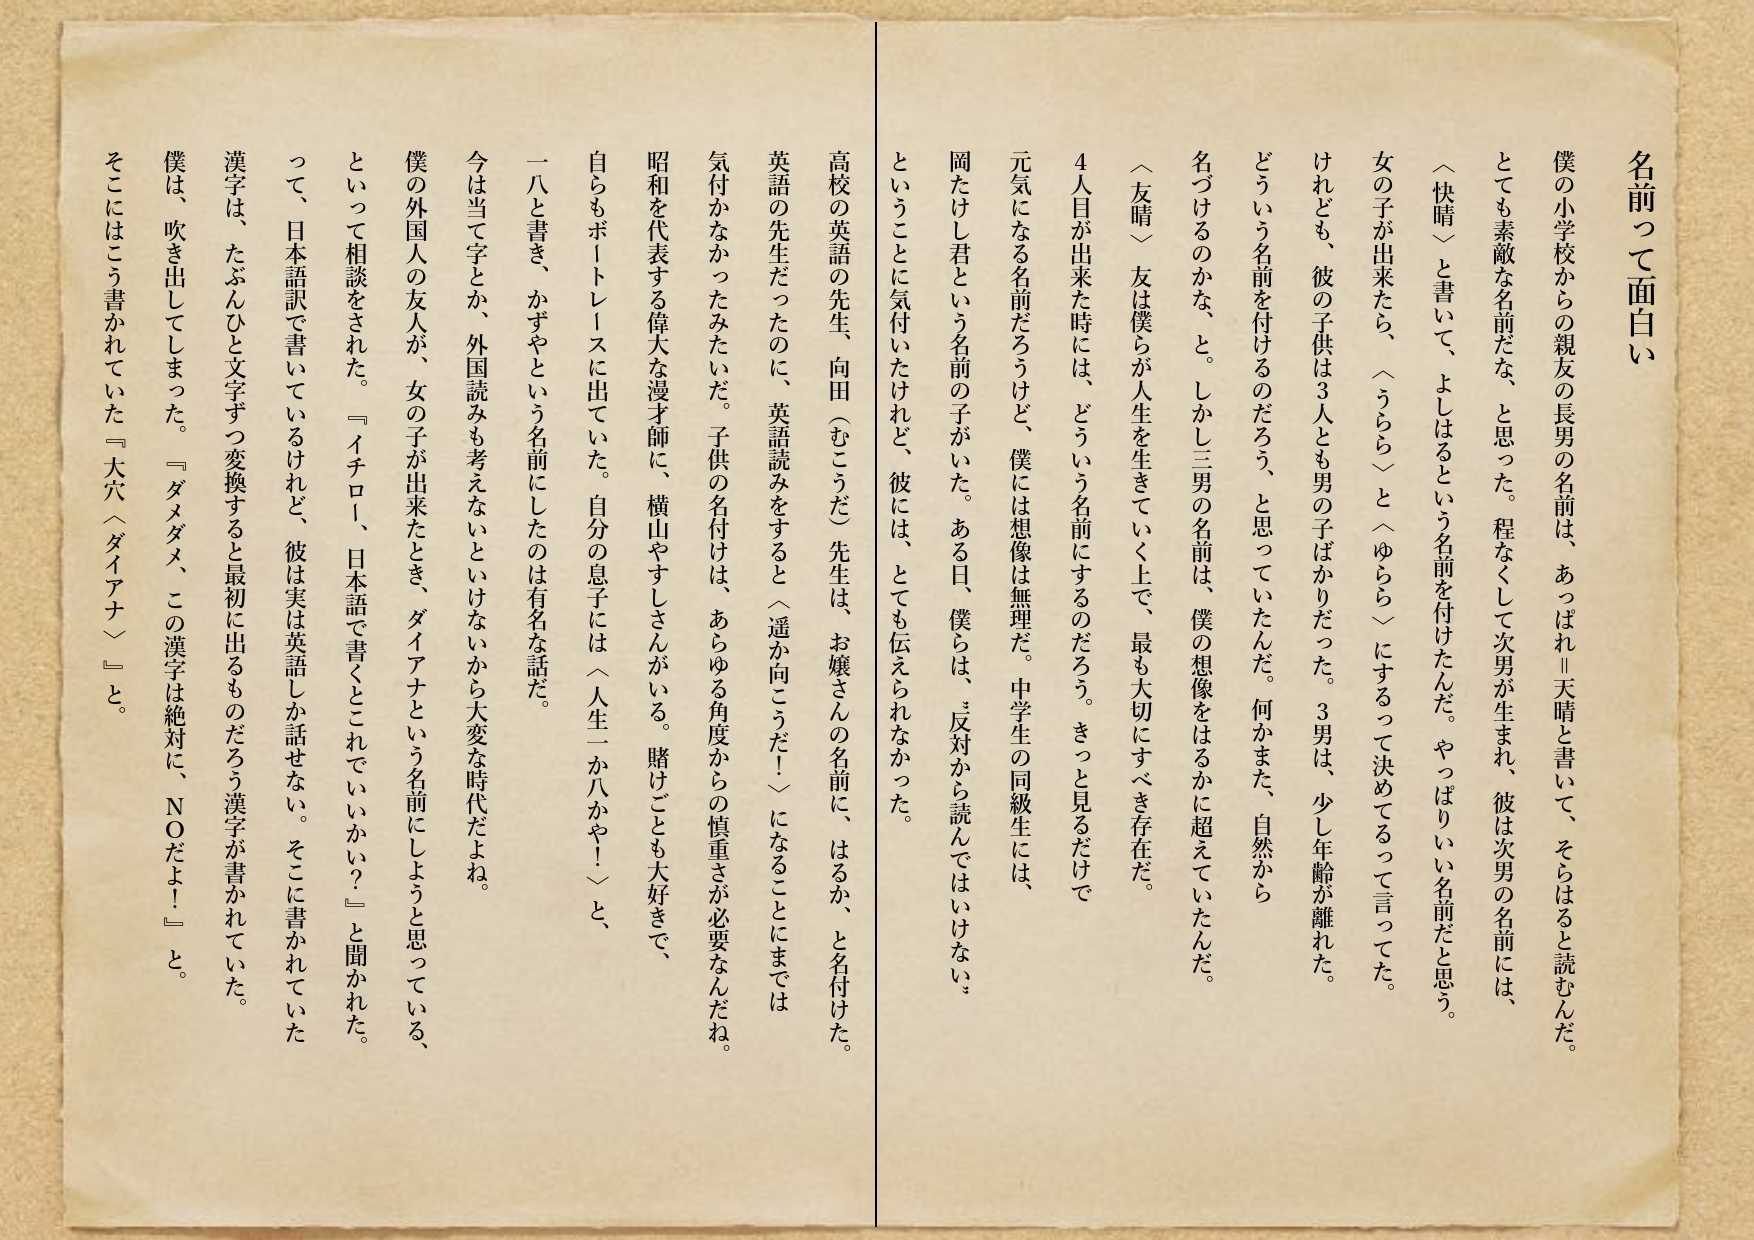 名前って面白い
僕の小学校からの親友の長男の名前は、あっぱれ＝天晴と書いて、そらはると読むんだ。
とても素敵な名前だな、と思った。程なくして次男が生まれ、彼は次男の名前には、
〈快晴〉と書いて、よしはるという名前を付けたんだ。やっぱりいい名前だと思う。
女の子が出来たら、〈うらら〉と〈ゆらら〉にするって決めてるって言ってた。
けれども、彼の子供は３人とも男の子ばかりだった。３男は、少し年齢が離れた。
どういう名前を付けるのだろう、と思っていたんだ。何かまた、自然から
名づけるのかな、と。しかし三男の名前は、僕の想像をはるかに超えていたんだ。
〈友晴〉友は僕らが人生を生きていく上で、最も大切にすべき存在だ。
４人目が出来た時には、どういう名前にするのだろう。きっと見るだけで
元気になる名前だろうけど、僕には想像は無理だ。中学生の同級生には、
岡たけし君という名前の子がいた。ある日、僕らは、〝反対から読んではいけない〟
ということに気付いたけれど、彼には、とても伝えられなかった。
高校の英語の先生、向田（むこうだ）先生は、お嬢さんの名前に、はるか、と名付けた。
英語の先生だったのに、英語読みをすると〈遥か向こうだ！〉になることにまでは
気付かなかったみたいだ。子供の名付けは、あらゆる角度からの慎重さが必要なんだね。
昭和を代表する偉大な漫才師に、横山やすしさんがいる。賭けごとも大好きで、
自らもボートレースに出ていた。自分の息子には〈人生一か八かや！〉と、
一八と書き、かずやという名前にしたのは有名な話だ。
今は当て字とか、外国読みも考えないといけないから大変な時代だよね。
僕の外国人の友人が、女の子が出来たとき、ダイアナという名前にしようと思っている、
といって相談をされた。『イチロー、日本語で書くとこれでいいかい？』と聞かれた。
って、日本語訳で書いているけれど、彼は実は英語しか話せない。そこに書かれていた
漢字は、たぶんひと文字ずつ変換すると最初に出るものだろう漢字が書かれていた。
僕は、吹き出してしまった。『ダメダメ、この漢字は絶対に、ＮＯだよ！』と。
そこにはこう書かれていた『大穴〈ダイアナ〉』と。